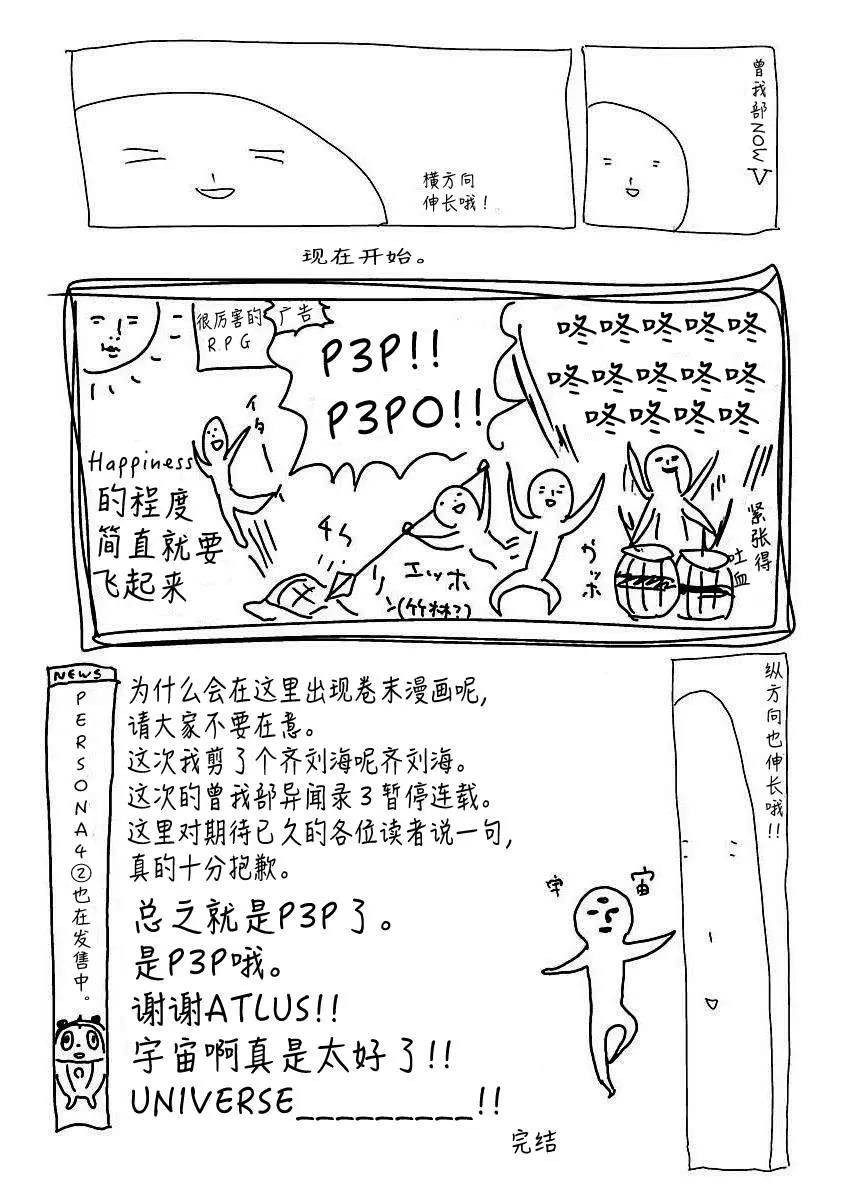 曾我部NOW
横方向
伸长哦！
现在开始。
很厉害的
RPG
广告
P3P!!
P3PO!!
咚咚咚咚咚
咚咚咚咚咚
咚咚咚咚
Happiness
的程度
简直就要
飞起来
イタ
エッホ
(竹林?)
ガッホ
紧张得
吐血
NEWS
PERSONA4②也在发售中。
为什么会在这里出现卷末漫画呢,
请大家不要在意。
这次我剪了个齐刘海呢齐刘海。
这次的曾我部异闻录3暂停连载。
这里对期待已久的各位读者说一句,
真的十分抱歉。
总之就是P3P了。
是P3P哦。
谢谢ATLUS!!
宇宙啊真是太好了!!
UNIVERSE_________!!
完结
宇宙
纵方向也伸长哦!!